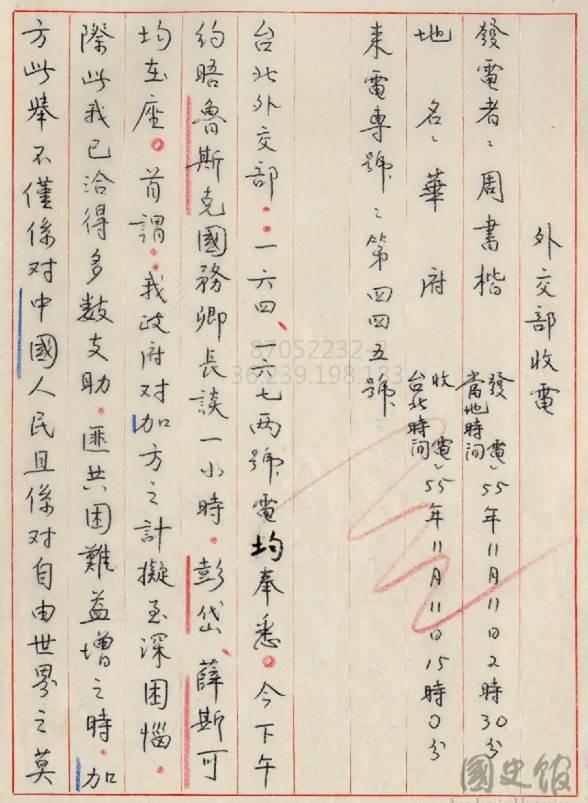 外交部收電
發電者：周書楷
發電：55年11月11日2時30分
當地時間
地名：華府
收電：55年11月11日15時0分
台北時間
來電專號：第四四五號
台北外交部：一六四、一六七兩號電均奉悉。今下午
約晤魯斯克國務卿長談一小時。彭岱、薛斯可
均在座。首謂：我政府对加方之計擬至深困惱。
際此我已洽得多數支助。匪共困難益增之時。加
方此舉不僅係对中國人民且係对自由世界之莫
87052232_3
36.239.198.183
國史館